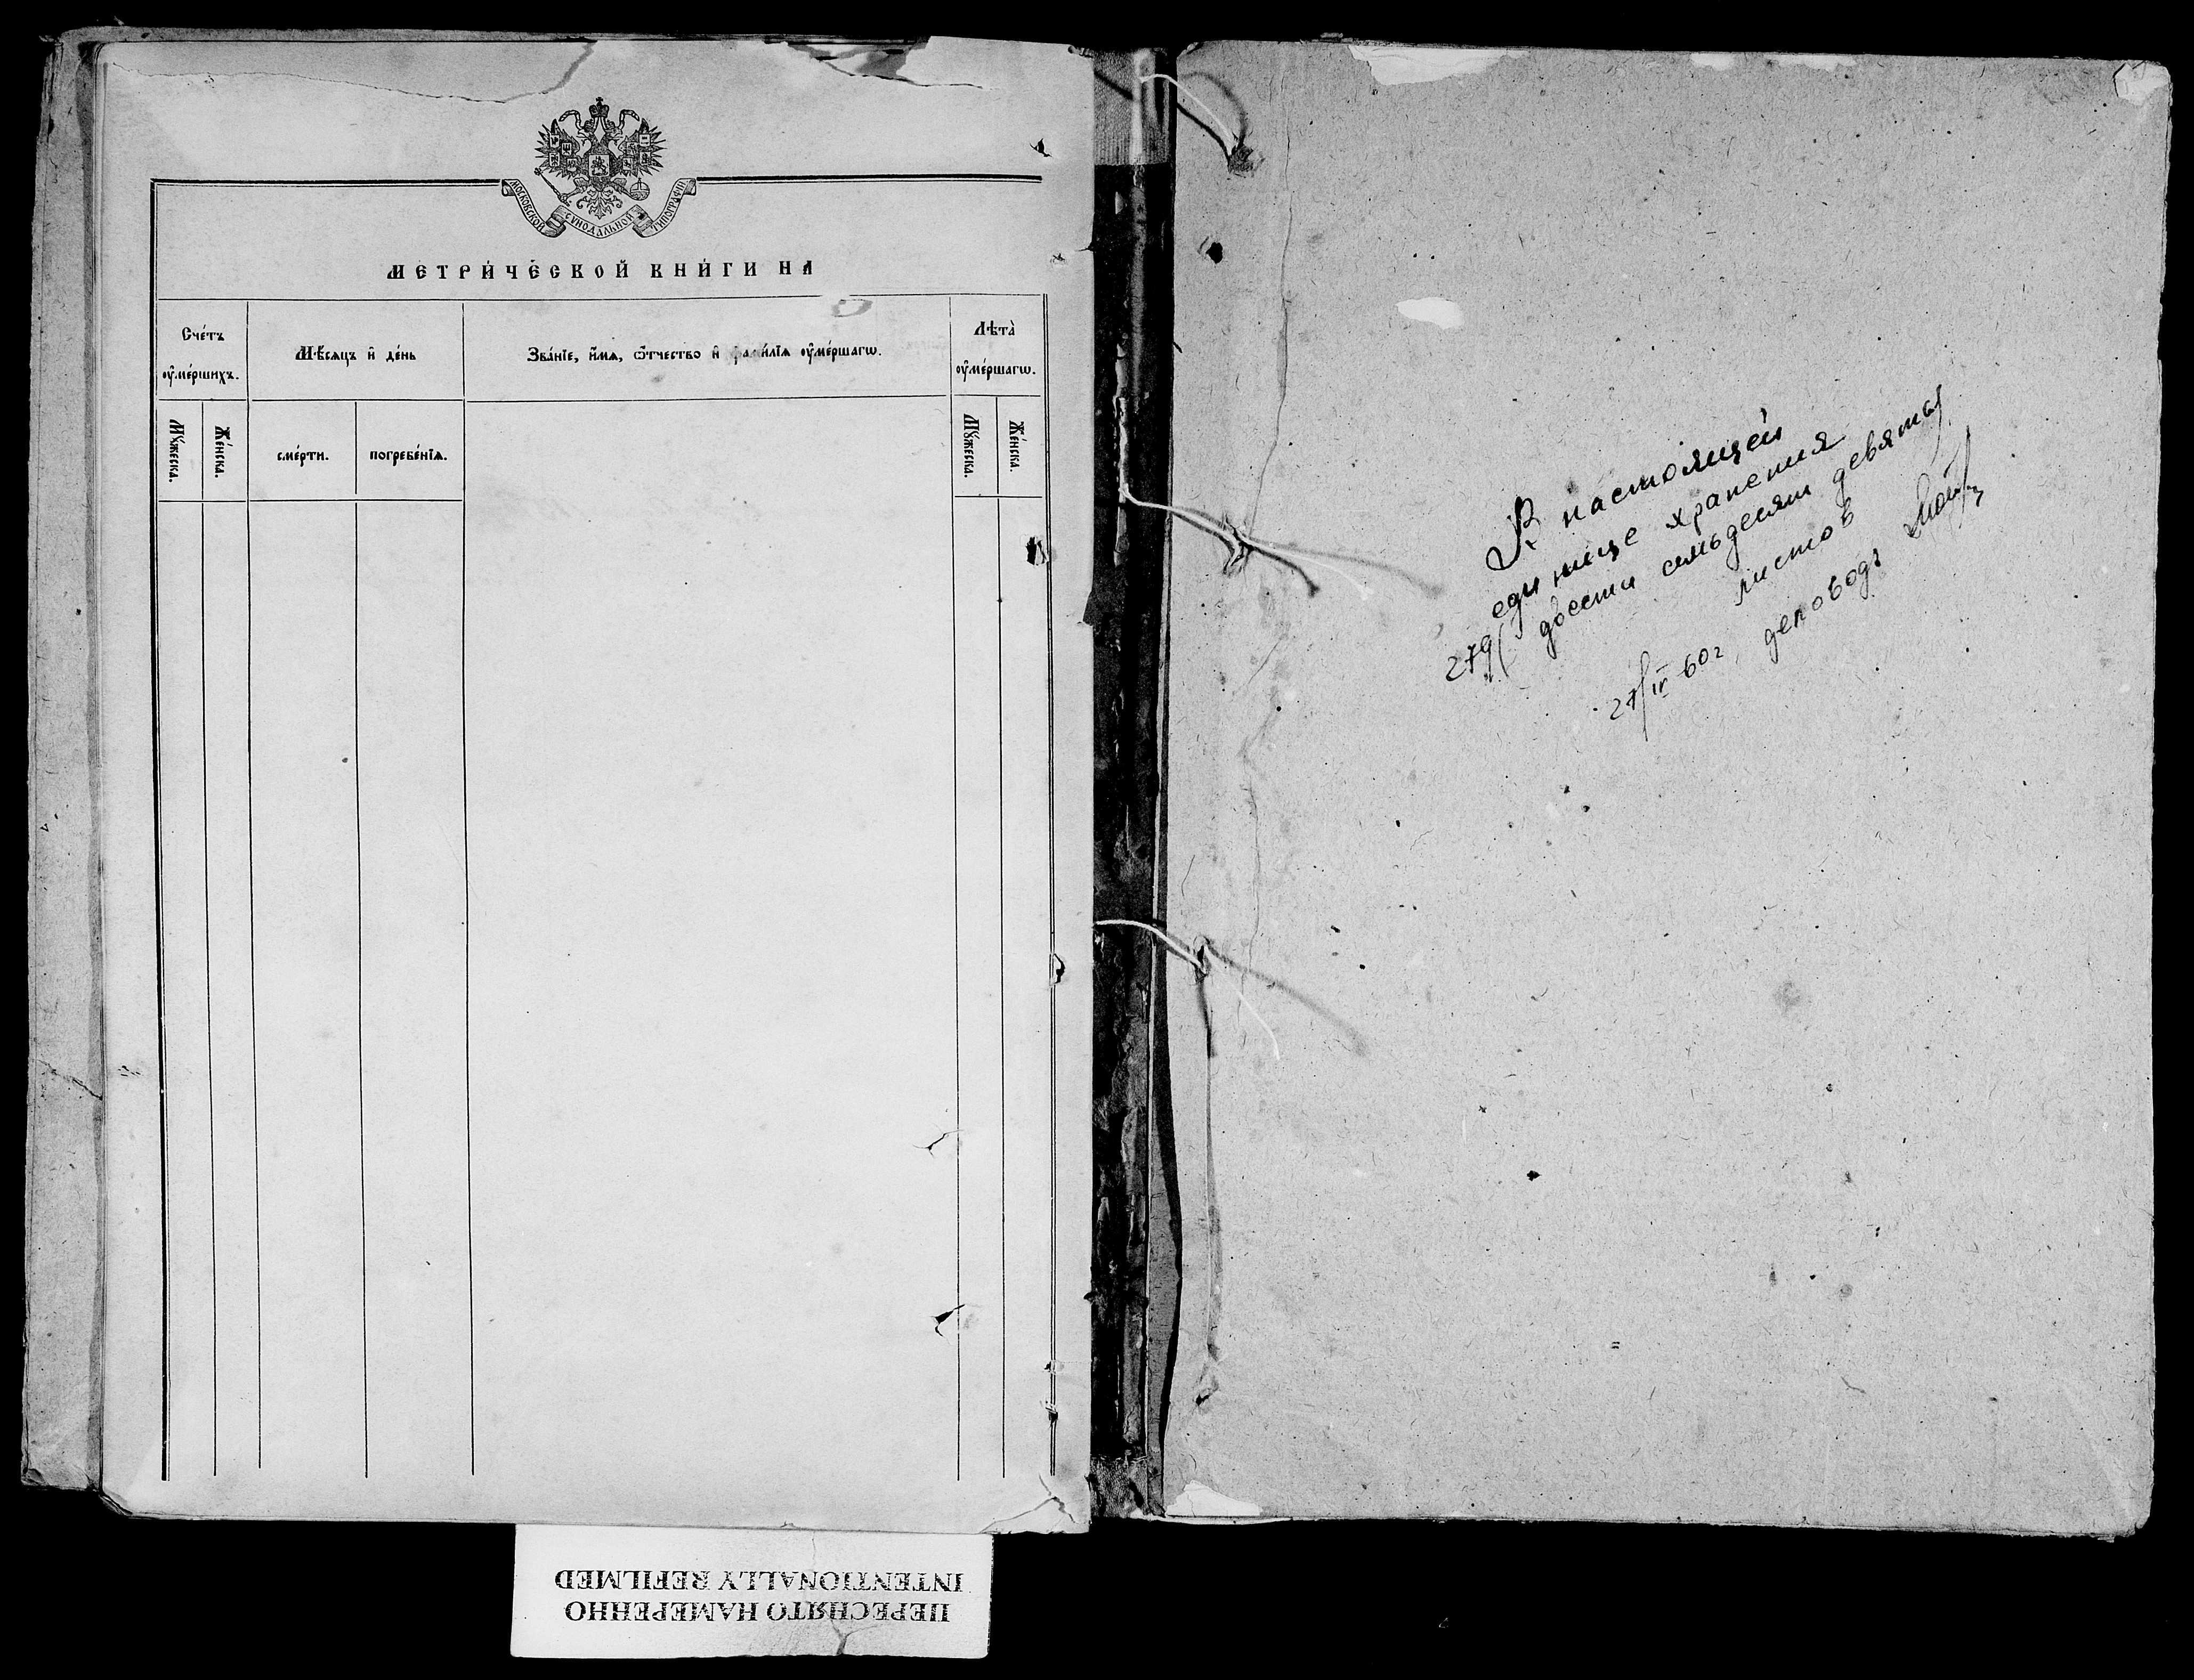 МОСКОВСКОЙ СУНОДАЛЬНОЙ ТИПОГРАФІИ
МЕТРИ́ЧЕСКОЙ КНИ́ГИ НА
Сче́тъ ᲂу҆ме́ршихъ.
Мѣ́сяцъ и҆ де́нь
Зва́нїе, и҆́мѧ, ѻ҆́тчество и҆ фами́лїѧ ᲂу҆ме́ршагѡ.
Лѣта̀ ᲂу҆ме́ршагѡ.
Мꙋ́жеска.
Же́нска.
сме́рти.
погребе́нїѧ.
Мꙋ́жеска.
Же́нска.
В настоящей
единице хранения
279 (двести семьдесят девять)
листов
27/IV 60г. деловод
ПЕРЕСНЯТО НАМЕРЕННО
INTENTIONALLY REFILMED